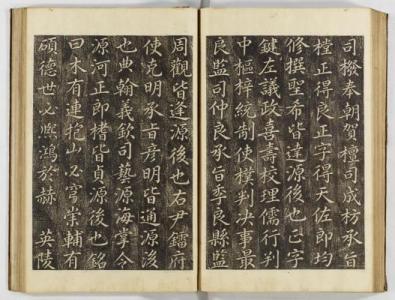 司撥奉朝賀櫝司成枋承旨
樘正得良正字得天佐郎均
修撰堊希皆達源後也正字
鍵左議政喜壽校理儒行判
中樞梓統制使模判决事最
良監司仲良承旨季良縣監
周觀皆逢源後也右尹鐳府
使克明承旨彦明皆通源後
也典翰義欽司藝源海掌令
源河正郎楮皆貞源後也銘
曰木有連抱山必穹崇輔有
碩德世必熙鴻於赫 英陵